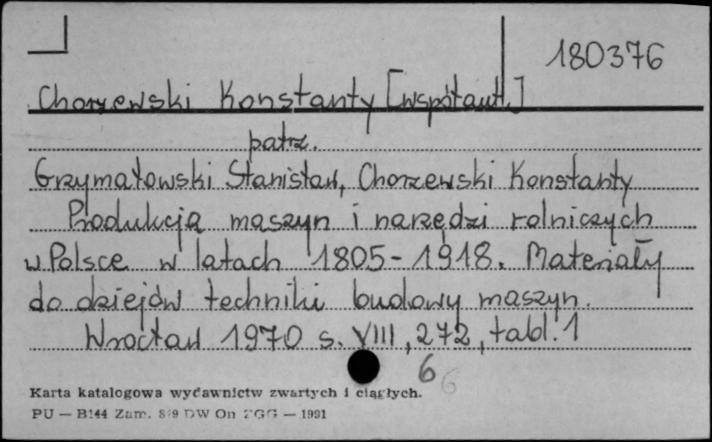 180376
Chorzewski Konstanty [współaut.]
patrz.
Grzymałowski Stanisław, Chorzewski Konstanty
Produkcja maszyn i narzędzi rolniczych
w Polsce w latach 1805-1918. Materiały
do dziejów techniki budowy maszyn.
Wrocław 1970 s. VIII, 272, tabl. 1
6 6
Karta katalogowa wydawnictw zwartych i ciągłych.
PU — B144 Zam. 8/9 DW On ZGG — 1991